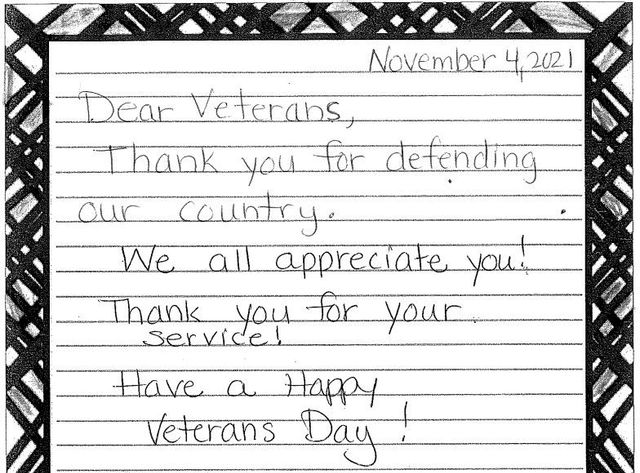 November 4, 2021
Dear Veterans,
Thank you for defending
our country.
We all appreciate you!
Thank you for your
service!
Have a Happy
Veterans Day!